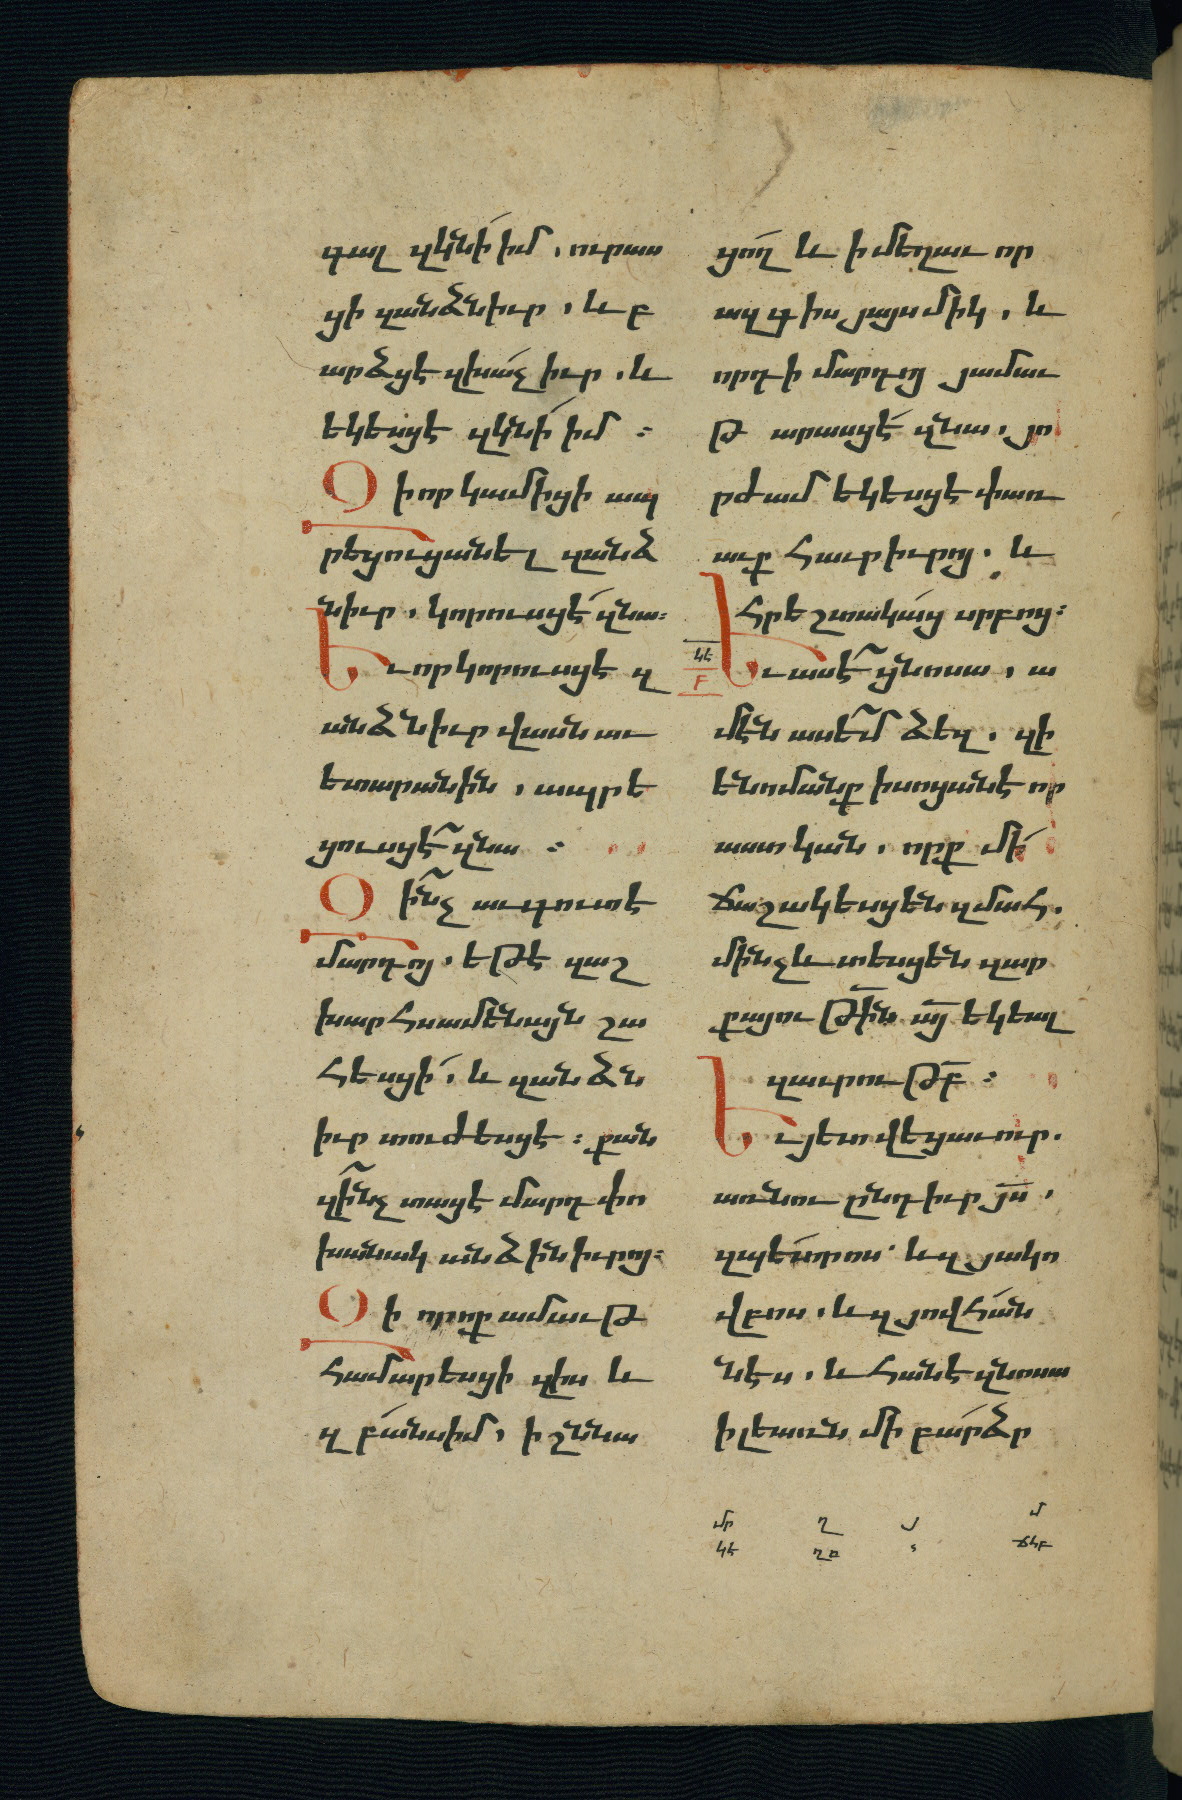 գալ զկնի իմ, ուրաս
ցի զանձնիւր, և բ
արձցէ զխաչ իւր, և
եկեսցէ զկնի իմ :
Զի որ կամիցի ապ
րեցուցանել զանձ
նիւր, կորուսցէ զնա:
Եւ որ կորուսցէ զ
անձնիւր վասն աւ
ետարանին, ապրե
ցուսցէ զնա :
Զինչ աւգուտ է
մարդոյ, եթէ զաշ
խարհ ամենայն շա
հեսցի, և զանձն
իւր տուժեսցէ : քան
զինչ տացէ մարդ փո
խանակ անձին իւրոյ:
Զի որոք ամաւթ
համարեսցի զիս և
զբանս իմ, ի շննա
ցող և ի մեղաւոր
ազգիս յայսմիկ, և
որդի մարդոյ յամաւ
թ արասցէ զնա, յո
րժամ եկեսցէ փառ
աւք հաւր իւրոյ. և
հրեշտակաց սրբոց:
կե
բ
Եւ ասէ ցնոսա, ա
մէն ասեմ ձեզ, զի
են ոմանք ի սոցանէ որ
աստ կան, որք մի
ճաշակեսցեն զմահ.
մինչև տեսցեն զար
քայութին այ եկեալ
զաւրութբ :
Եւ յետ վեց աւուր.
առնու ընդ իւր յս,
զպետրոս. և զյակո
վբոս, և զյովհան
նէս, և հանէ զնոսա
ի լեառն մի բարձր
մր ղ յ մ
կե ճկբ